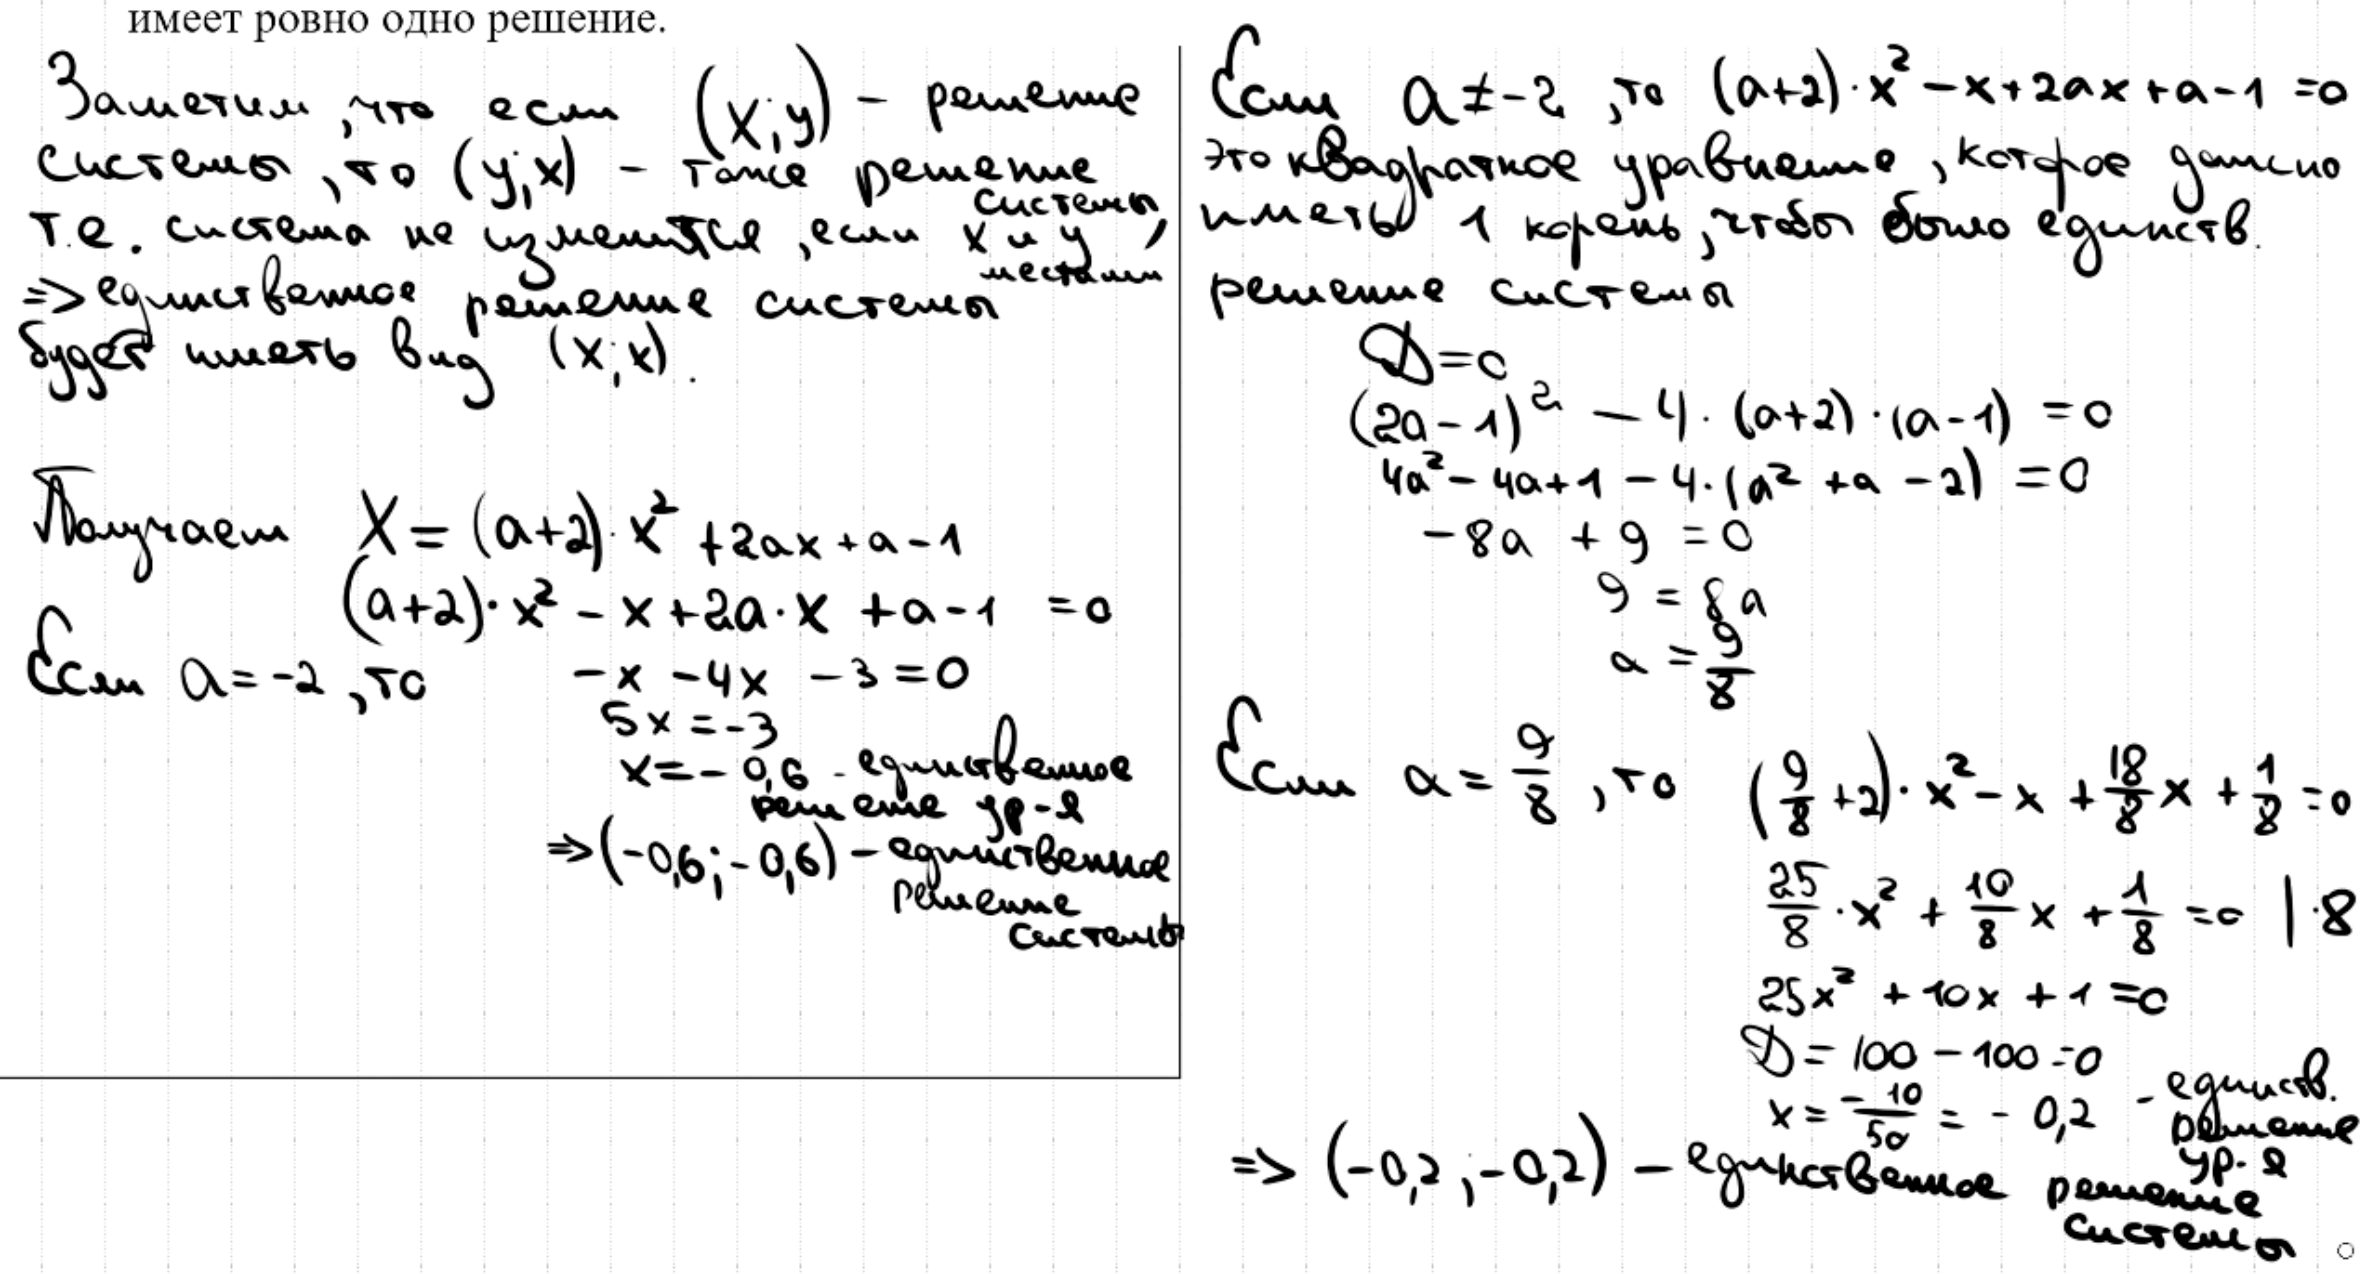 имеет ровно одно решение.
Заметим, что если (x;y) – решение
системы, то (y;x) – тоже решение
системы,
т.е. система не изменится, если x и y
местами
=> единственное решение системы
будет иметь вид (x;x).
Получаем x = (a+2)·x² + 2ax + a - 1
(a+2)·x² - x + 2a·x + a - 1 = 0
Если a = -2, то -x - 4x - 3 = 0
5x = -3
x = -0,6 - единственное
решение ур-я
=> (-0,6; -0,6) – единственное
решение
системы
Если a ≠ -2, то (a+2)·x² - x + 2ax + a - 1 = 0
это квадратное уравнение, которое должно
иметь 1 корень, чтобы было единств.
решение системы
D = 0
(2a - 1)² - 4·(a+2)·(a-1) = 0
4a² - 4a + 1 - 4·(a² + a - 2) = 0
-8a + 9 = 0
9 = 8a
a = 9/8
Если a = 9/8, то (9/8 + 2)·x² - x + 18/8 x + 1/8 = 0
25/8·x² + 10/8 x + 1/8 = 0 |·8
25x² + 10x + 1 = 0
D = 100 - 100 = 0
x = -10/50 = -0,2 - единств.
решение
ур-я
=> (-0,2; -0,2) – единственное решение
системы